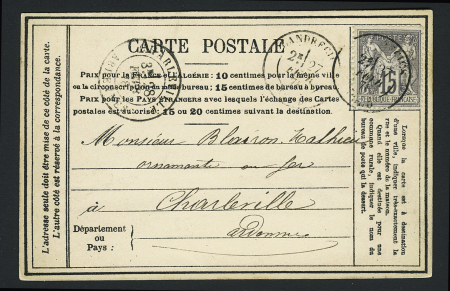 CARTE POSTALE
PRIX POUR LA FRANCE ET L'ALGÉRIE : 10 centimes pour la même ville
ou la circonscription du même bureau ; 15 centimes de bureau à bureau.
PRIX POUR LES PAYS ÉTRANGERS avec lesquels l'échange des Cartes
postales est autorisé : 15 ou 20 centimes suivant la destination.
L'adresse seule doit être mise de ce côté de la carte.
L'autre côté est réservé à la correspondance.
Monsieur Mathieu
ornamente en fer
à Charleville
Ardennes
Département
ou
Pays :
15
Lorsque la carte est à destination
d'une ville, indiquer très-exactement la
rue et le numéro de la maison.
Quand elle est destinée pour une
commune rurale, indiquer le nom du
bureau de poste qui la dessert.